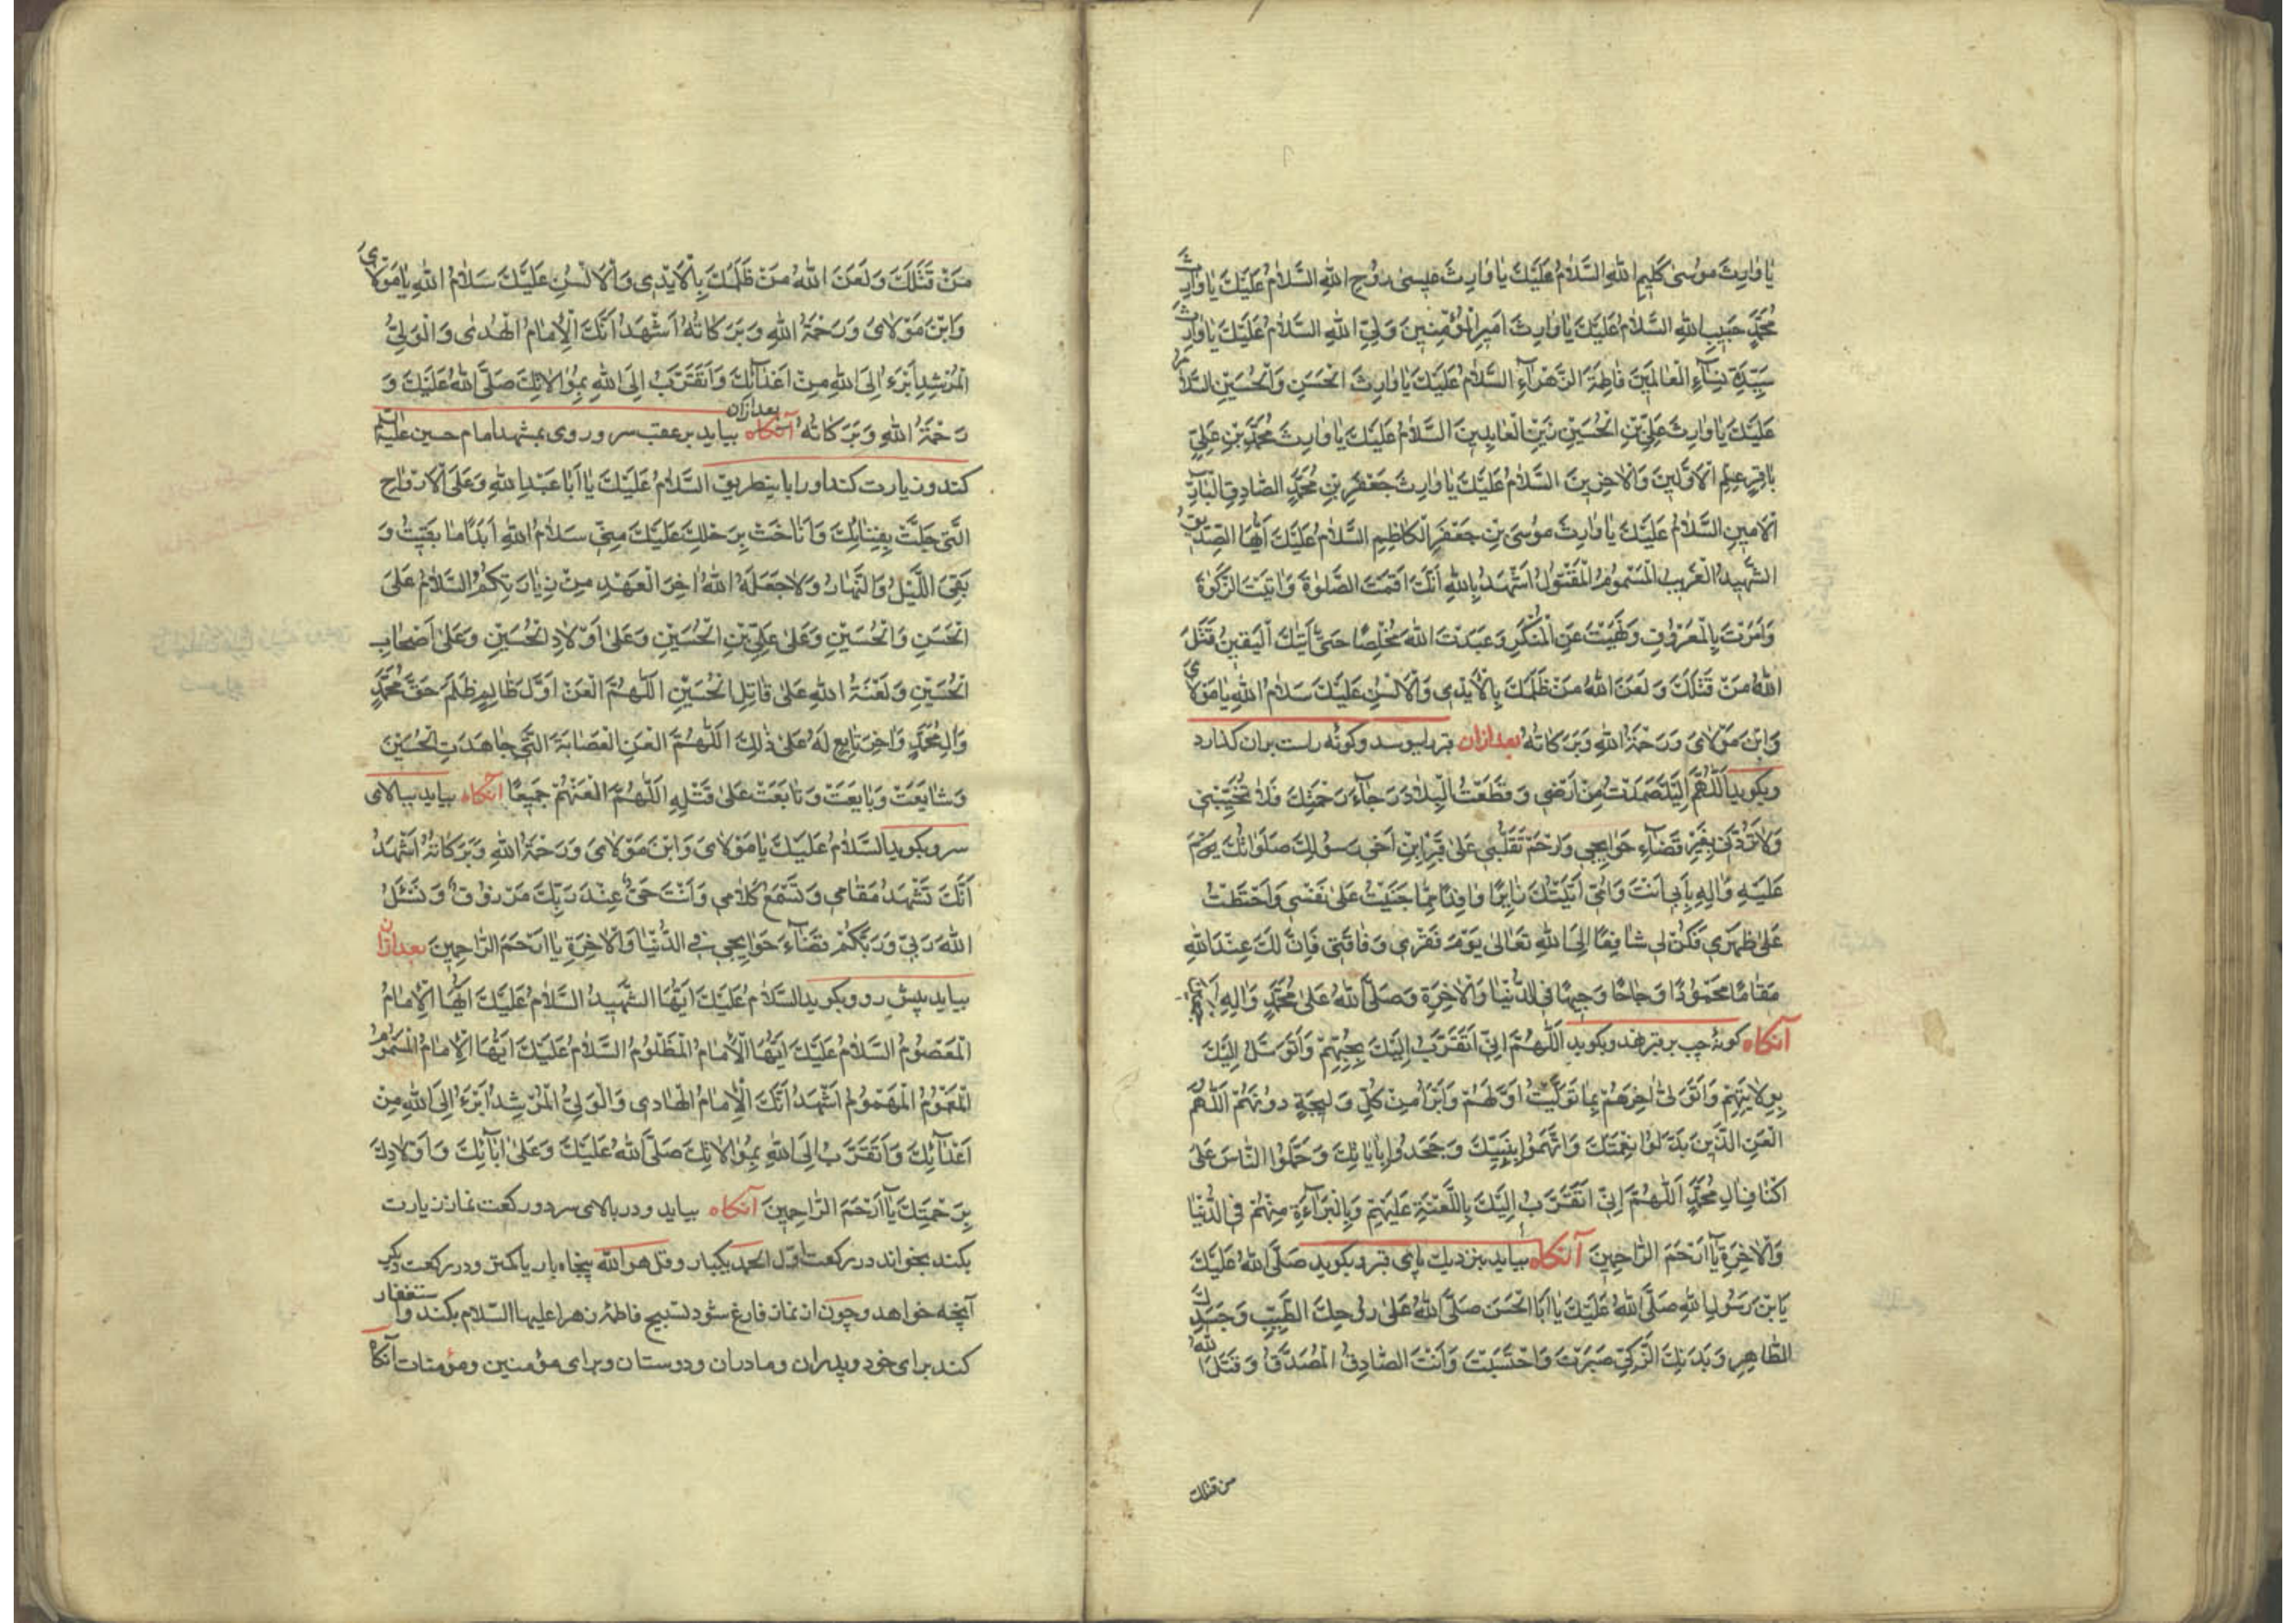 يَا وَارِثَ مُوسىٰ كَلِيمِ اللهِ السَّلَامُ عَلَيْكَ يَا وَارِثَ عِيسىٰ رُوحِ اللهِ السَّلَامُ عَلَيْكَ يَا وَارِثَ
مُحَمَّدٍ حَبِيبِ اللهِ السَّلَامُ عَلَيْكَ يَا وَارِثَ اَمِيرِ الْمُؤْمِنِينَ وَلِيِّ اللهِ السَّلَامُ عَلَيْكَ يَا وَارِثَ
سَيِّدَةِ نِسَآءِ الْعَالَمِينَ فَاطِمَةَ الزَّهْرَآءِ السَّلَامُ عَلَيْكَ يَا وَارِثَ الْحَسَنِ وَالْحُسَيْنِ السَّلَامُ
عَلَيْكَ يَا وَارِثَ عَلِيِّ بْنِ الْحُسَيْنِ زَيْنِ الْعَابِدِينَ السَّلَامُ عَلَيْكَ يَا وَارِثَ مُحَمَّدِ بْنِ عَلِيٍّ
بَاقِرِ عِلْمِ الْاَوَّلِينَ وَالْاٰخِرِينَ السَّلَامُ عَلَيْكَ يَا وَارِثَ جَعْفَرِ بْنِ مُحَمَّدٍ الصَّادِقِ الْبَارِّ
الْاَمِينِ السَّلَامُ عَلَيْكَ يَا وَارِثَ مُوسَى بْنِ جَعْفَرٍ الْكَاظِمِ السَّلَامُ عَلَيْكَ اَيُّهَا الصِّدِّيقُ
الشَّهِيدُ الْغَرِيبُ الْمَسْمُومُ الْمَقْتُولُ اَشْهَدُ بِاللهِ اَنَّكَ اَقَمْتَ الصَّلٰوةَ وَاٰتَيْتَ الزَّكٰوةَ
وَاَمَرْتَ بِالْمَعْرُوفِ وَنَهَيْتَ عَنِ الْمُنْكَرِ وَعَبَدْتَ اللهَ مُخْلِصًا حَتّٰى اَتٰيكَ الْيَقِينُ قَتَلَ
اللهُ مَنْ قَتَلَكَ وَلَعَنَ اللهُ مَنْ ظَلَمَكَ بِالْاَيْدِي وَالْاَلْسُنِ عَلَيْكَ سَلَامُ اللهِ يَا مَوْلَايَ
وَابْنَ مَوْلَايَ وَرَحْمَةُ اللهِ وَبَرَكَاتُهُ بعد ازان قبر را ببوسد و کونه راست بران کذارد
وبکوید اَللّٰهُمَّ اِلَيْكَ صَمَدْتُ مِنْ اَرْضِي وَقَطَعْتُ الْبِلَادَ رَجَآءَ رَحْمَتِكَ فَلَا تُخَيِّبْنِي
وَلَا تَرُدَّنِي بِغَيْرِ قَضَآءِ حَوَايِجِي وَارْحَمْ تَقَلُّبِي عَلىٰ قَبْرِ ابْنِ اَخِي رَسُولِكَ صَلَوَاتُكَ
عَلَيْهِ وَاٰلِهِ بِاَبِي اَنْتَ وَاُمِّي اَتَيْتُكَ زَائِرًا وَافِدًا مِمَّا جَنَيْتُ عَلىٰ نَفْسِي وَاحْتَطَبْتُ
عَلىٰ ظَهْرِي فَكُنْ لِي شَافِعًا اِلَى اللهِ تَعَالىٰ يَوْمَ فَقْرِي وَفَاقَتِي فَاِنَّ لَكَ عِنْدَ اللهِ
مَقَامًا مَحْمُودًا وَجَاهًا وَجِيهًا فِي الدُّنْيَا وَالْاٰخِرَةِ وَصَلَّى اللهُ عَلىٰ مُحَمَّدٍ وَاٰلِهِ
آنکاه کونهٔ چپ بر قبر نهد وبکوید اَللّٰهُمَّ اِنِّي اَتَقَرَّبُ اِلَيْكَ بِحُبِّهِمْ وَاَتَوَسَّلُ اِلَيْكَ
بِوِلَايَتِهِمْ وَاَتَوَلّىٰ اٰخِرَهُمْ بِمَا تَوَلَّيْتُ اَوَّلَهُمْ وَاَبْرَأُ مِنْ كُلِّ وَلِيجَةٍ دُونَهُمْ اَللّٰهُمَّ
الْعَنِ الَّذِينَ بَدَّلُوا نِعْمَتَكَ وَاتَّهَمُوا نَبِيَّكَ وَجَحَدُوا بِاٰيَاتِكَ وَحَمَلُوا النَّاسَ عَلىٰ
اَكْتَافِ اٰلِ مُحَمَّدٍ اَللّٰهُمَّ اِنِّي اَتَقَرَّبُ اِلَيْكَ بِاللَّعْنَةِ عَلَيْهِمْ وَبِالْبَرَآءَةِ مِنْهُمْ فِي الدُّنْيَا
وَالْاٰخِرَةِ يَا اَرْحَمَ الرَّاحِمِينَ آنکاه بیاید بنزدیك پای قبر وبکوید صَلَّى اللهُ عَلَيْكَ
يَا بْنَ رَسُولِ اللهِ صَلَّى اللهُ عَلَيْكَ يَا اَبَا الْحَسَنِ صَلَّى اللهُ عَلىٰ رُوحِكَ الطَّيِّبِ وَجَسَدِكَ
الطَّاهِرِ وَبَدَنِكَ الزَّكِيِّ صَبَرْتَ وَاحْتَسَبْتَ وَاَنْتَ الصَّادِقُ الْمُصَدَّقُ وَقَتَلَ اللهُ
من قتلك
مَنْ قَتَلَكَ وَلَعَنَ اللهُ مَنْ ظَلَمَكَ بِالْاَيْدِي وَالْاَلْسُنِ عَلَيْكَ سَلَامُ اللهِ يَا مَوْلَايَ
وَابْنَ مَوْلَايَ وَرَحْمَةُ اللهِ وَبَرَكَاتُهُ اَشْهَدُ اَنَّكَ الْاِمَامُ الْهُدىٰ وَالْوَلِيُّ
الْمُرْشِدُ اَبْرَءُ اِلَى اللهِ مِنْ اَعْدَآئِكَ وَاَتَقَرَّبُ اِلَى اللهِ بِمُوَالَاتِكَ صَلَّى اللهُ عَلَيْكَ وَ
رَحْمَةُ اللهِ وَبَرَكَاتُهُ آنکاه بعد ازان بیاید بر عقب سر و روی بمشهد امام حسین علیه السلم
کند وزیارت کند اورا باینطریق السَّلَامُ عَلَيْكَ يَا اَبَا عَبْدِ اللهِ وَعَلَى الْاَرْوَاحِ
الَّتِي حَلَّتْ بِفِنَائِكَ وَاَنَاخَتْ بِرَحْلِكَ عَلَيْكَ مِنِّي سَلَامُ اللهِ اَبَدًا مَا بَقِيتُ وَ
بَقِيَ اللَّيْلُ وَالنَّهَارُ وَلَا جَعَلَهُ اللهُ اٰخِرَ الْعَهْدِ مِنْ زِيَارَتِكُمْ السَّلَامُ عَلَى
الْحَسَنِ وَالْحُسَيْنِ وَعَلىٰ عَلِيِّ بْنِ الْحُسَيْنِ وَعَلىٰ اَوْلَادِ الْحُسَيْنِ وَعَلىٰ اَصْحَابِ
الْحُسَيْنِ وَلَعْنَةُ اللهِ عَلىٰ قَاتِلِ الْحُسَيْنِ اَللّٰهُمَّ الْعَنْ اَوَّلَ ظَالِمٍ ظَلَمَ حَقَّ مُحَمَّدٍ
وَاٰلِ مُحَمَّدٍ وَاٰخِرَ تَابِعٍ لَهُ عَلىٰ ذٰلِكَ اَللّٰهُمَّ الْعَنِ الْعِصَابَةَ الَّتِي جَاهَدَتِ الْحُسَيْنَ
وَشَايَعَتْ وَبَايَعَتْ وَتَابَعَتْ عَلىٰ قَتْلِهِ اَللّٰهُمَّ الْعَنْهُمْ جَمِيعًا آنکاه بیاید ببالای
سر وبکوید السَّلَامُ عَلَيْكَ يَا مَوْلَايَ وَابْنَ مَوْلَايَ وَرَحْمَةُ اللهِ وَبَرَكَاتُهُ اَشْهَدُ
اَنَّكَ تَشْهَدُ مَقَامِي وَتَسْمَعُ كَلَامِي وَاَنْتَ حَيٌّ عِنْدَ رَبِّكَ مَرْزُوقٌ وَنَسْئَلُ
اللهَ رَبِّي وَرَبَّكُمْ قَضَآءَ حَوَايِجِي فِي الدُّنْيَا وَالْاٰخِرَةِ يَا اَرْحَمَ الرَّاحِمِينَ بعد ازان
بیاید پیش رو وبکوید السَّلَامُ عَلَيْكَ اَيُّهَا الشَّهِيدُ السَّلَامُ عَلَيْكَ اَيُّهَا الْاِمَامُ
الْمَعْصُومُ السَّلَامُ عَلَيْكَ اَيُّهَا الْاِمَامُ الْمَظْلُومُ السَّلَامُ عَلَيْكَ اَيُّهَا الْاِمَامُ الْمَسْمُومُ
الْمَغْمُومُ الْمَهْمُومُ اَشْهَدُ اَنَّكَ الْاِمَامُ الْهَادِي وَالْوَلِيُّ الْمُرْشِدُ اَبْرَءُ اِلَى اللهِ مِنْ
اَعْدَآئِكَ وَاَتَقَرَّبُ اِلَى اللهِ بِمُوَالَاتِكَ صَلَّى اللهُ عَلَيْكَ وَعَلىٰ اٰبَآئِكَ وَاَوْلَادِكَ
بِرَحْمَتِكَ يَا اَرْحَمَ الرَّاحِمِينَ آنکاه بیاید ودر بالای سر دو رکعت نماز زیارت
بکند بخواند در رکعت اول الحمد یکبار وقل هو الله پنجاه بار یا کمتر ودر رکعت دیکر
آنچه خواهد وچون از نماز فارغ شود تسبیح فاطمهٔ زهرا علیها السلام بکند واستغفار
کند برای خود وپدران ومادران ودوستان وبرای مؤمنین ومؤمنات آنکاه